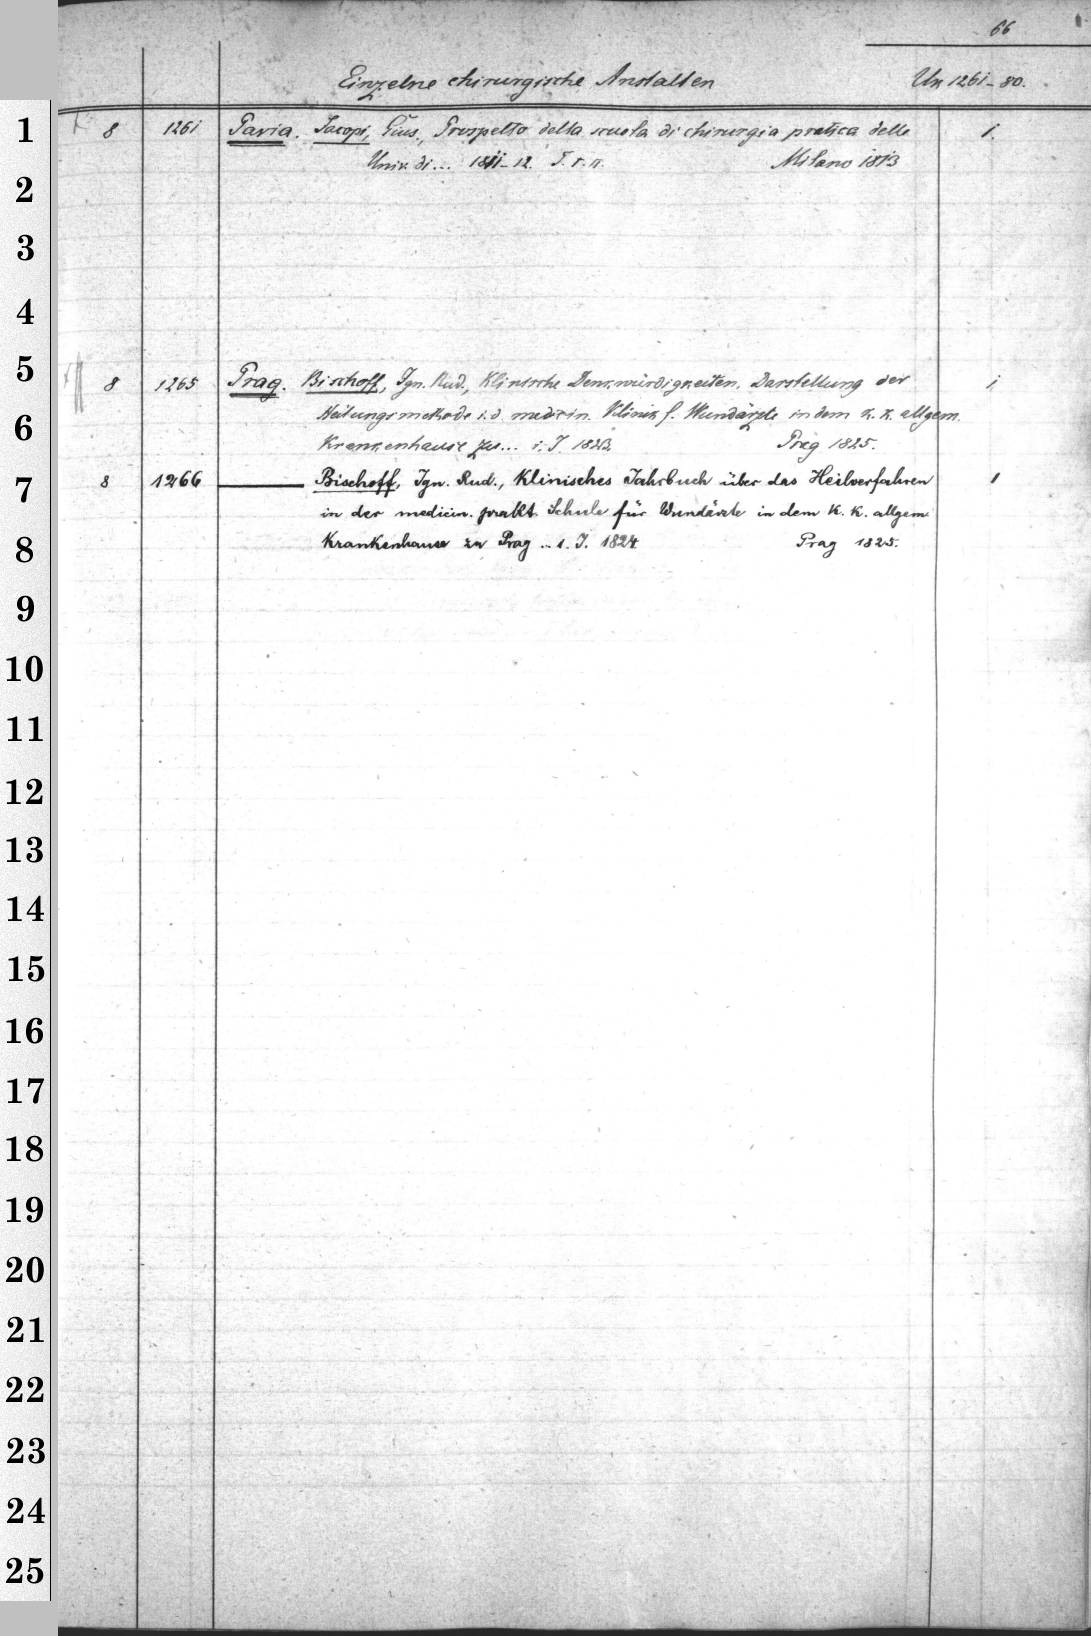 66
Einzelne chirurgische Anstalten Un 1261-80.
8 1261 Pavia. Jacopi, Gius., Prospetto della scuola di chirurgia pratica delle 1.
Univ. di ... 1811-12. T. I. II. Milano 1813
8 1265 Prag. Bischoff, Ign. Rud., Klinische Denkwürdigkeiten. Darstellung der 1
Heilungsmethode i. d. medicin. Klinik f. Wundärzte in dem k. k. allgem.
Krankenhause zu ... i. J. 1823. Prag 1825.
8 1266 ——— Bischoff, Ign. Rud., Klinisches Jahrbuch über das Heilverfahren 1
in der medicin. prakt. Schule für Wundärzte in dem k. k. allgem.
Krankenhause zu Prag .. i. J. 1824 Prag 1825.
1
2
3
4
5
6
7
8
9
10
11
12
13
14
15
16
17
18
19
20
21
22
23
24
25